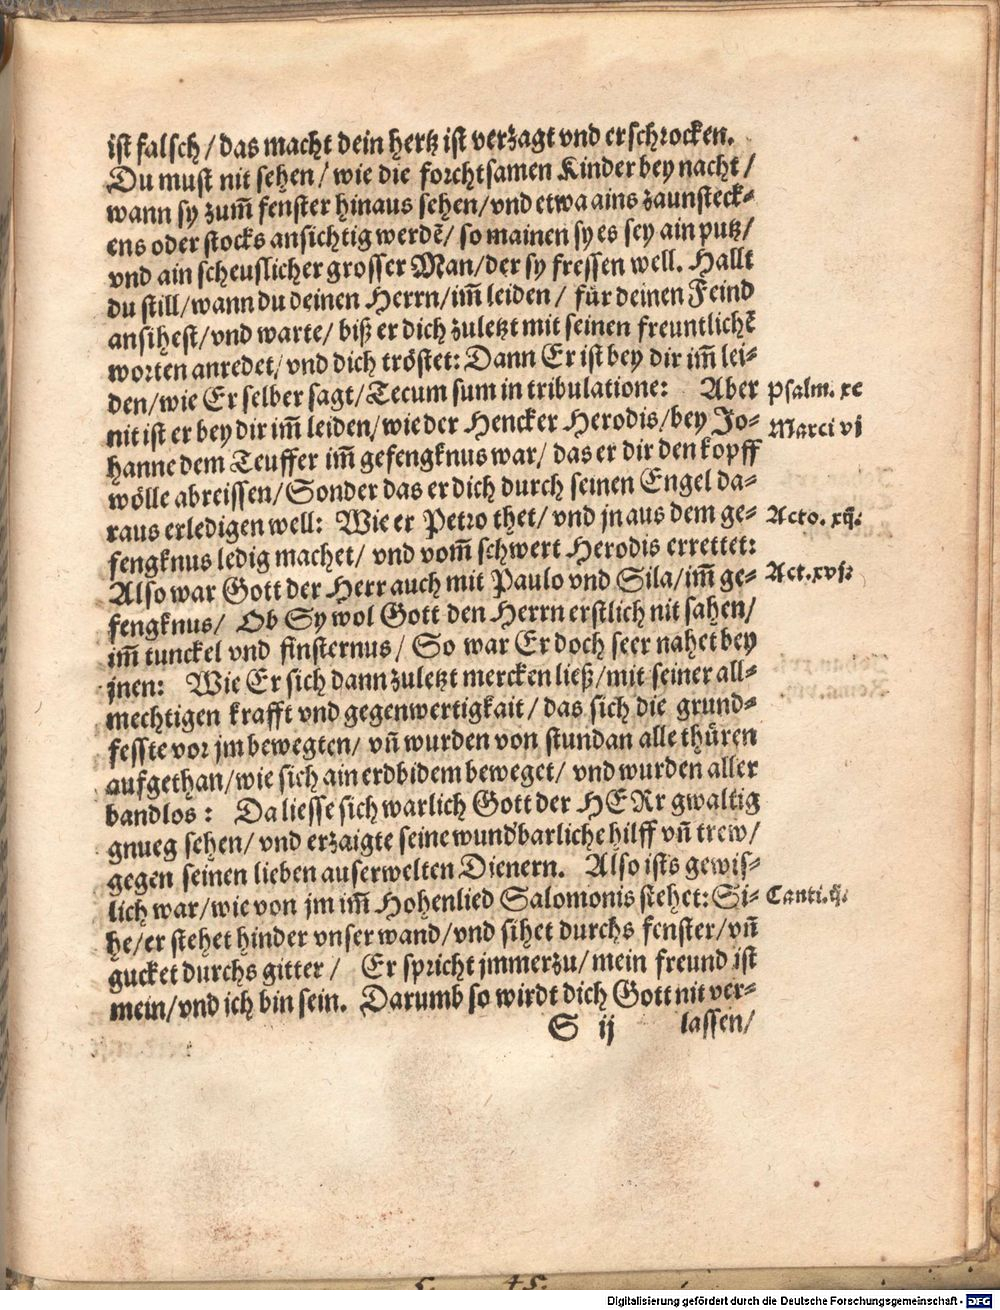 ist falsch / das macht dein hertz ist verzagt vnd erschrocken.
Du must nit sehen / wie die forchtsamen Kinder bey nacht /
wann sy zum̃ fenster hinaus sehen / vnd etwa ains zaunsteck-
ens oder stocks ansichtig werdẽ / so mainen sy es sey ain putz /
vnd ain scheuslicher grosser Man / der sy fressen well. Hallt
du still / wann du deinen Herrn / im̃ leiden / für deinen Feind
ansihest / vnd warte / biß er dich zuletzt mit seinen freuntlichẽ
worten anredet / vnd dich tröstet: Dann Er ist bey dir im̃ lei-
den / wie Er selber sagt / Tecum sum in tribulatione: Aber
Psalm. xc
nit ist er bey dir im̃ leiden / wie der Hencker Herodis / bey Jo-
Marci vj
hanne dem Teuffer im̃ gefengknus war / das er dir den kopff
wölle abreissen / Sonder das er dich durch seinen Engel da-
raus erledigen well: Wie er Petro thet / vnd jn aus dem ge-
Acto. xij.
fengknus ledig machet / vnd vom̃ schwert Herodis errettet:
Also war Gott der Herr auch mit Paulo vnd Sila / im̃ ge-
Act. xvj.
fengknus / Ob Sy wol Gott den Herrn erstlich nit sahen /
im̃ tunckel vnd finsternus / So war Er doch seer nahet bey
jnen: Wie Er sich dann zuletzt mercken ließ / mit seiner all-
mechtigen krafft vnd gegenwertigkait / das sich die grund-
fesste vor jm bewegten / vñ wurden von stundan alle thüren
aufgethan / wie sich ain erdbidem beweget / vnd wurden aller
bandlos: Da liesse sich warlich Gott der HERr gwaltig
gnueg sehen / vnd erzaigte seine wund'barliche hilff vñ trew /
gegen seinen lieben auserwelten Dienern. Also ists gewis-
lich war / wie von jm im̃ Hohenlied Salomonis stehet: Si-
Canti. ij.
he / er stehet hinder vnser wand / vnd sihet durchs fenster / vñ
gucket durchs gitter / Er spricht jmmerzu / mein freund ist
mein / vnd ich bin sein. Darumb so wirdt dich Gott nit ver-
S ij lassen /
Digitalisierung gefördert durch die Deutsche Forschungsgemeinschaft - DFG